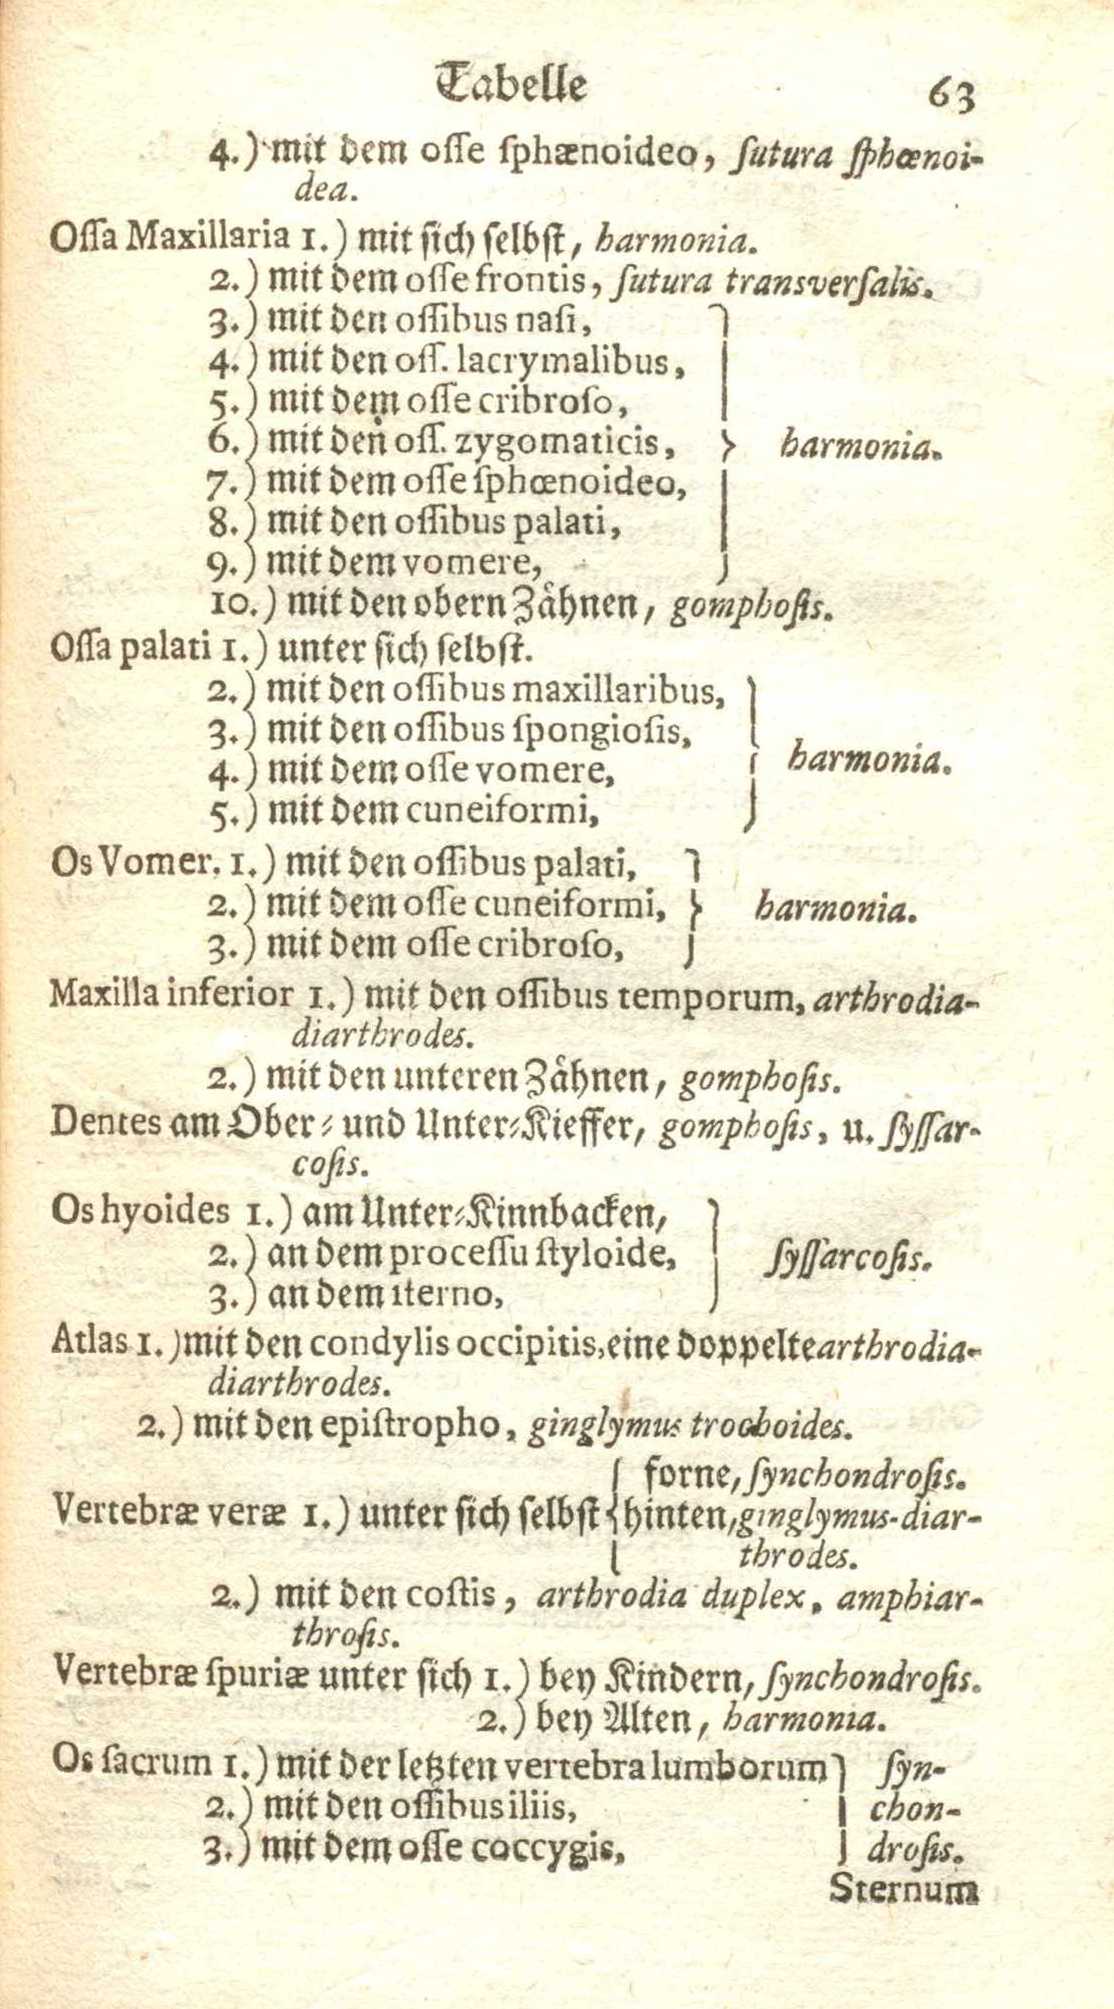 Tabelle 63
4.) mit dem oſſe ſphænoideo, ſutura ſphœnoi-
dea.
Oſſa Maxillaria 1.) mit ſich ſelbſt, harmonia.
2.) mit dem oſſe frontis, ſutura transverſalis.
3.) mit den oſſibus naſi,
4.) mit den oſſ. lacrymalibus,
5.) mit dem oſſe cribroſo,
6.) mit den oſſ. zygomaticis, } harmonia.
7.) mit dem oſſe ſphœnoideo,
8.) mit den oſſibus palati,
9.) mit dem vomere,
10.) mit den obern Zähnen, gomphoſis.
Oſſa palati 1.) unter ſich ſelbſt.
2.) mit den oſſibus maxillaribus,
3.) mit den oſſibus ſpongioſis,
4.) mit dem oſſe vomere, } harmonia.
5.) mit dem cuneiformi,
Os Vomer. 1.) mit den oſſibus palati,
2.) mit dem oſſe cuneiformi, } harmonia.
3.) mit dem oſſe cribroſo,
Maxilla inferior 1.) mit den oſſibus temporum, arthrodia-
diarthrodes.
2.) mit den unteren Zähnen, gomphoſis.
Dentes am Ober- und Unter-Kieffer, gomphoſis, u. ſyſſar-
coſis.
Os hyoides 1.) am Unter-Kinnbacken,
2.) an dem proceſſu ſtyloide, } ſyſſarcoſis.
3.) an dem iterno,
Atlas 1.) mit den condylis occipitis, eine doppelte arthrodia-
diarthrodes.
2.) mit den epiſtropho, ginglymus trochoides.
forne, ſynchondroſis.
Vertebræ veræ 1.) unter ſich ſelbſt { hinten, ginglymus-diar-
throdes.
2.) mit den coſtis, arthrodia duplex, amphiar-
throſis.
Vertebræ ſpuriæ unter ſich 1.) bey Kindern, ſynchondroſis.
2.) bey Alten, harmonia.
Os ſacrum 1.) mit der letzten vertebra lumborum } ſyn-
2.) mit den oſſibus iliis, chon-
3.) mit dem oſſe coccygis, droſis.
Sternum